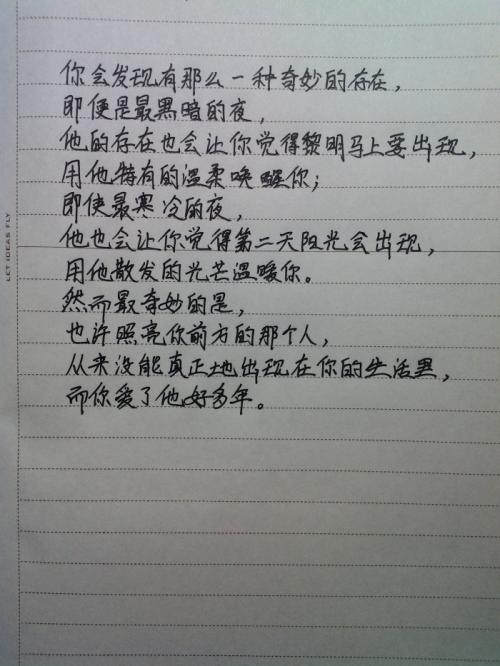 你会发现有那么一种奇妙的存在，
即便是最黑暗的夜，
他的存在也会让你觉得黎明马上要出现，
用他特有的温柔唤醒你；
即使最寒冷的夜，
他也会让你觉得第二天阳光会出现，
用他散发的光芒温暖你。
然而最奇妙的是，
也许照亮你前方的那个人，
从来没能真正地出现在你的生活里，
而你爱了他好多年。
LET IDEAS FLY